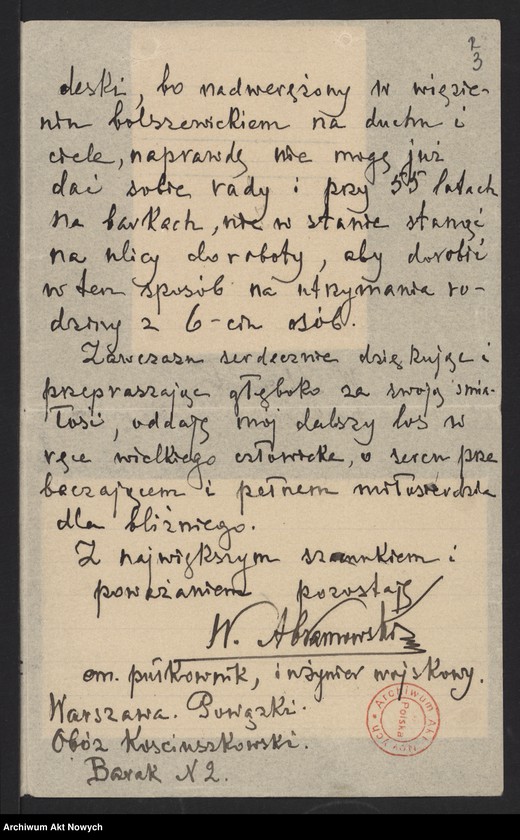 2
3
deski, bo nadwerężony w więzie-
niu bolszewickiem na duchu i
ciele, naprawdę nie mogę już
dać sobie rady i przy 55 latach
na barkach, nie w stanie stanąć
na ulicy do roboty, aby dorobić
w ten sposób na utrzymania ro-
dziny z 6-ciu osób.
Zawczasu serdecznie dziękując i
przepraszając głęboko za swoją śmia-
łość, oddaję mój dalszy los w
ręce wielkiego człowieka, o sercu prze
baczającem i pełnem miłosierdzia
dla bliźniego.
Z największym szacunkiem i
poważaniem pozostaję
W. Abramowski
em. pułkownik, inżynier wojskowy.
Warszawa. Powązki.
Obóz Kościuszkowski.
Barak N 2.
Archiwum Akt Nowych
Polska
Archiwum Akt Nowych